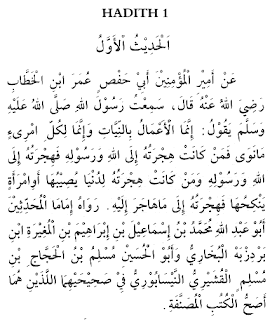 HADITH 1
اَلْحَدِيْثُ الْأَوَّلُ
عَنْ أَمِيْرِ الْمُؤْمِنِيْنَ أَبِيْ حَفْصٍ عُمَرَ ابْنِ الْخَطَّابِ
رَضِيَ اللهُ عَنْهُ قَالَ، سَمِعْتُ رَسُوْلَ اللهِ صَلَّى اللهُ عَلَيْهِ
وَسَلَّمَ يَقُوْلُ: إِنَّمَا الْأَعْمَالُ بِالنِّيَّاتِ وَإِنَّمَا لِكُلِّ امْرِيءٍ
مَانَوَى فَمَنْ كَانَتْ هِجْرَتُهُ إِلَى اللهِ وَرَسُوْلِهِ فَهِجْرَتُهُ إِلَى
اللهِ وَرَسُوْلِهِ وَمَنْ كَانَتْ هِجْرَتُهُ لِدُنْيَا يُصِيْبُهَا أَوِامْرَأَةٍ
يَنْكِحُهَا فَهِجْرَتُهُ إِلَى مَاهَاجَرَ إِلَيْهِ. رَوَاهُ إِمَامَا الْمُحَدِّثِيْنَ
أَبُوْ عَبْدِ اللهِ مُحَمَّدُ بْنُ إِسْمَاعِيْلَ بْنِ إِبْرَاهِيْمَ بْنِ الْمُغِيْرَةِ ابْنِ
بَرْدِزْبَهْ الْبُخَارِيُّ وَأَبُوْ الْحُسَيْنِ مُسْلِمُ بْنُ الْحَجَّاجِ بْنِ
مُسْلِمٍ الْقُشَيْرِيُّ النَّيْسَابُوْرِيُّ فِيْ صَحِيْحَيْهِمَا اللَّذَيْنِ هُمَا
أَصَحُّ الْكُتُبِ الْمُصَنَّفَةِ.